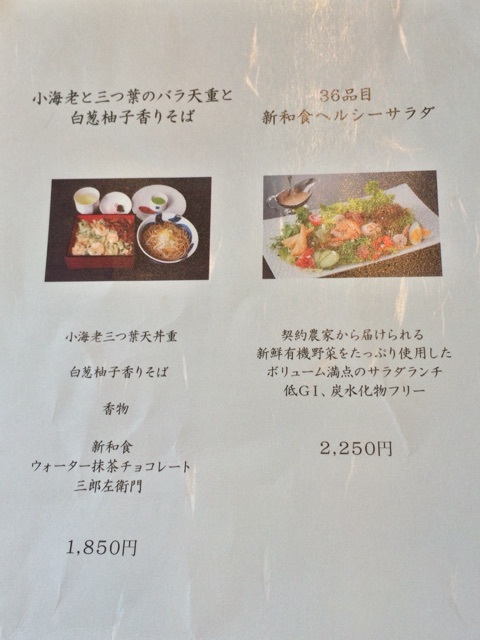 小海老と三つ葉のバラ天重と
白葱柚子香りそば
小海老三つ葉天丼重
白葱柚子香りそば
香物
新和食
ウォーター抹茶チョコレート
三郎左衛門
1,850円
36品目
新和食ヘルシーサラダ
契約農家から届けられる
新鮮有機野菜をたっぷり使用した
ボリューム満点のサラダランチ
低GI、炭水化物フリー
2,250円